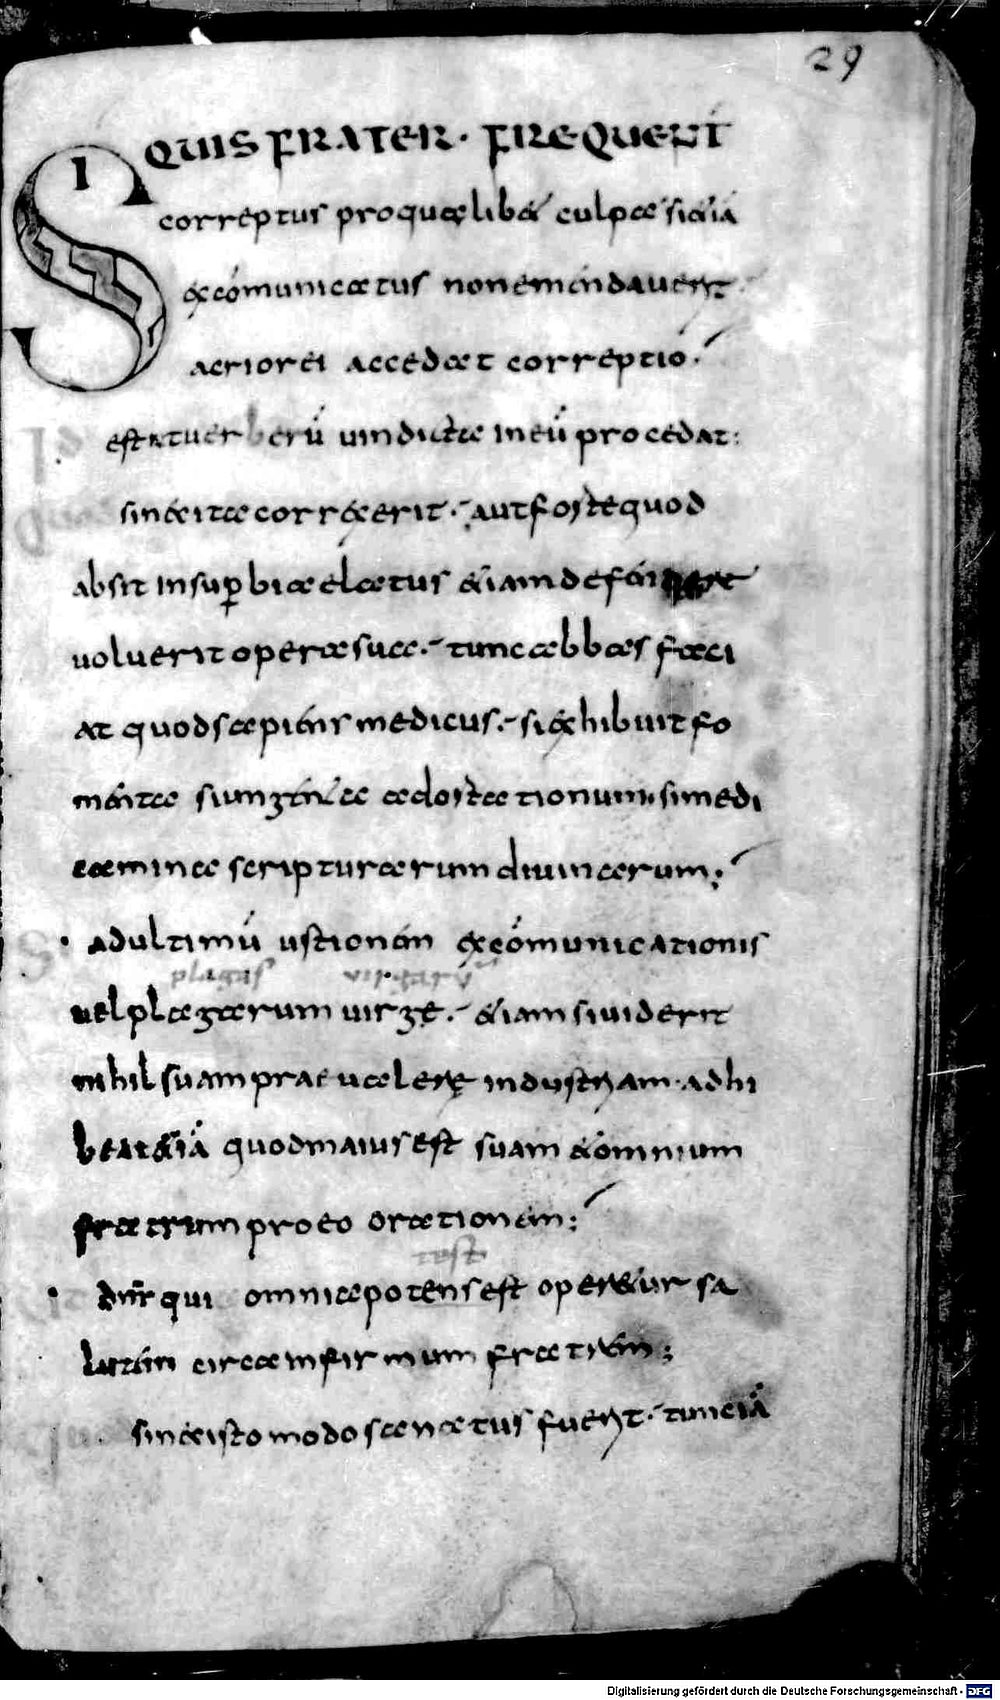 29
SI QUIS FRATER · FREQUENT
correptus pro qualibet culpa si etiā
excōmunicatus non emendaverit
acrior ei accedat correptio·
est ut verberū vindicta in eū procedat:
sin aeita correxerit · aut forte quod
absit in suꝑbia elatus etiam defendere
voluerit opera sua · tunc abbas faci
at quod sapiens medicus · si exhibuit fo
menta si ungenta adortationum · si medi
camina scripturarum divinarum;
adultimū ustionem excōmunicationis
plagas virgarū
vel plagarum virge · etiam si viderit
nihil suam praevalere industriam · adhi
beat etiā quod maius est suam et omnium
fratrum pro eo orationem;
test
dn̄s qui omnia potens est operetur sa
lutem circa infirmum fratrem;
sin ae isto modo sanatus fuerit · tunc iā
Digitalisierung gefördert durch die Deutsche Forschungsgemeinschaft - DFG